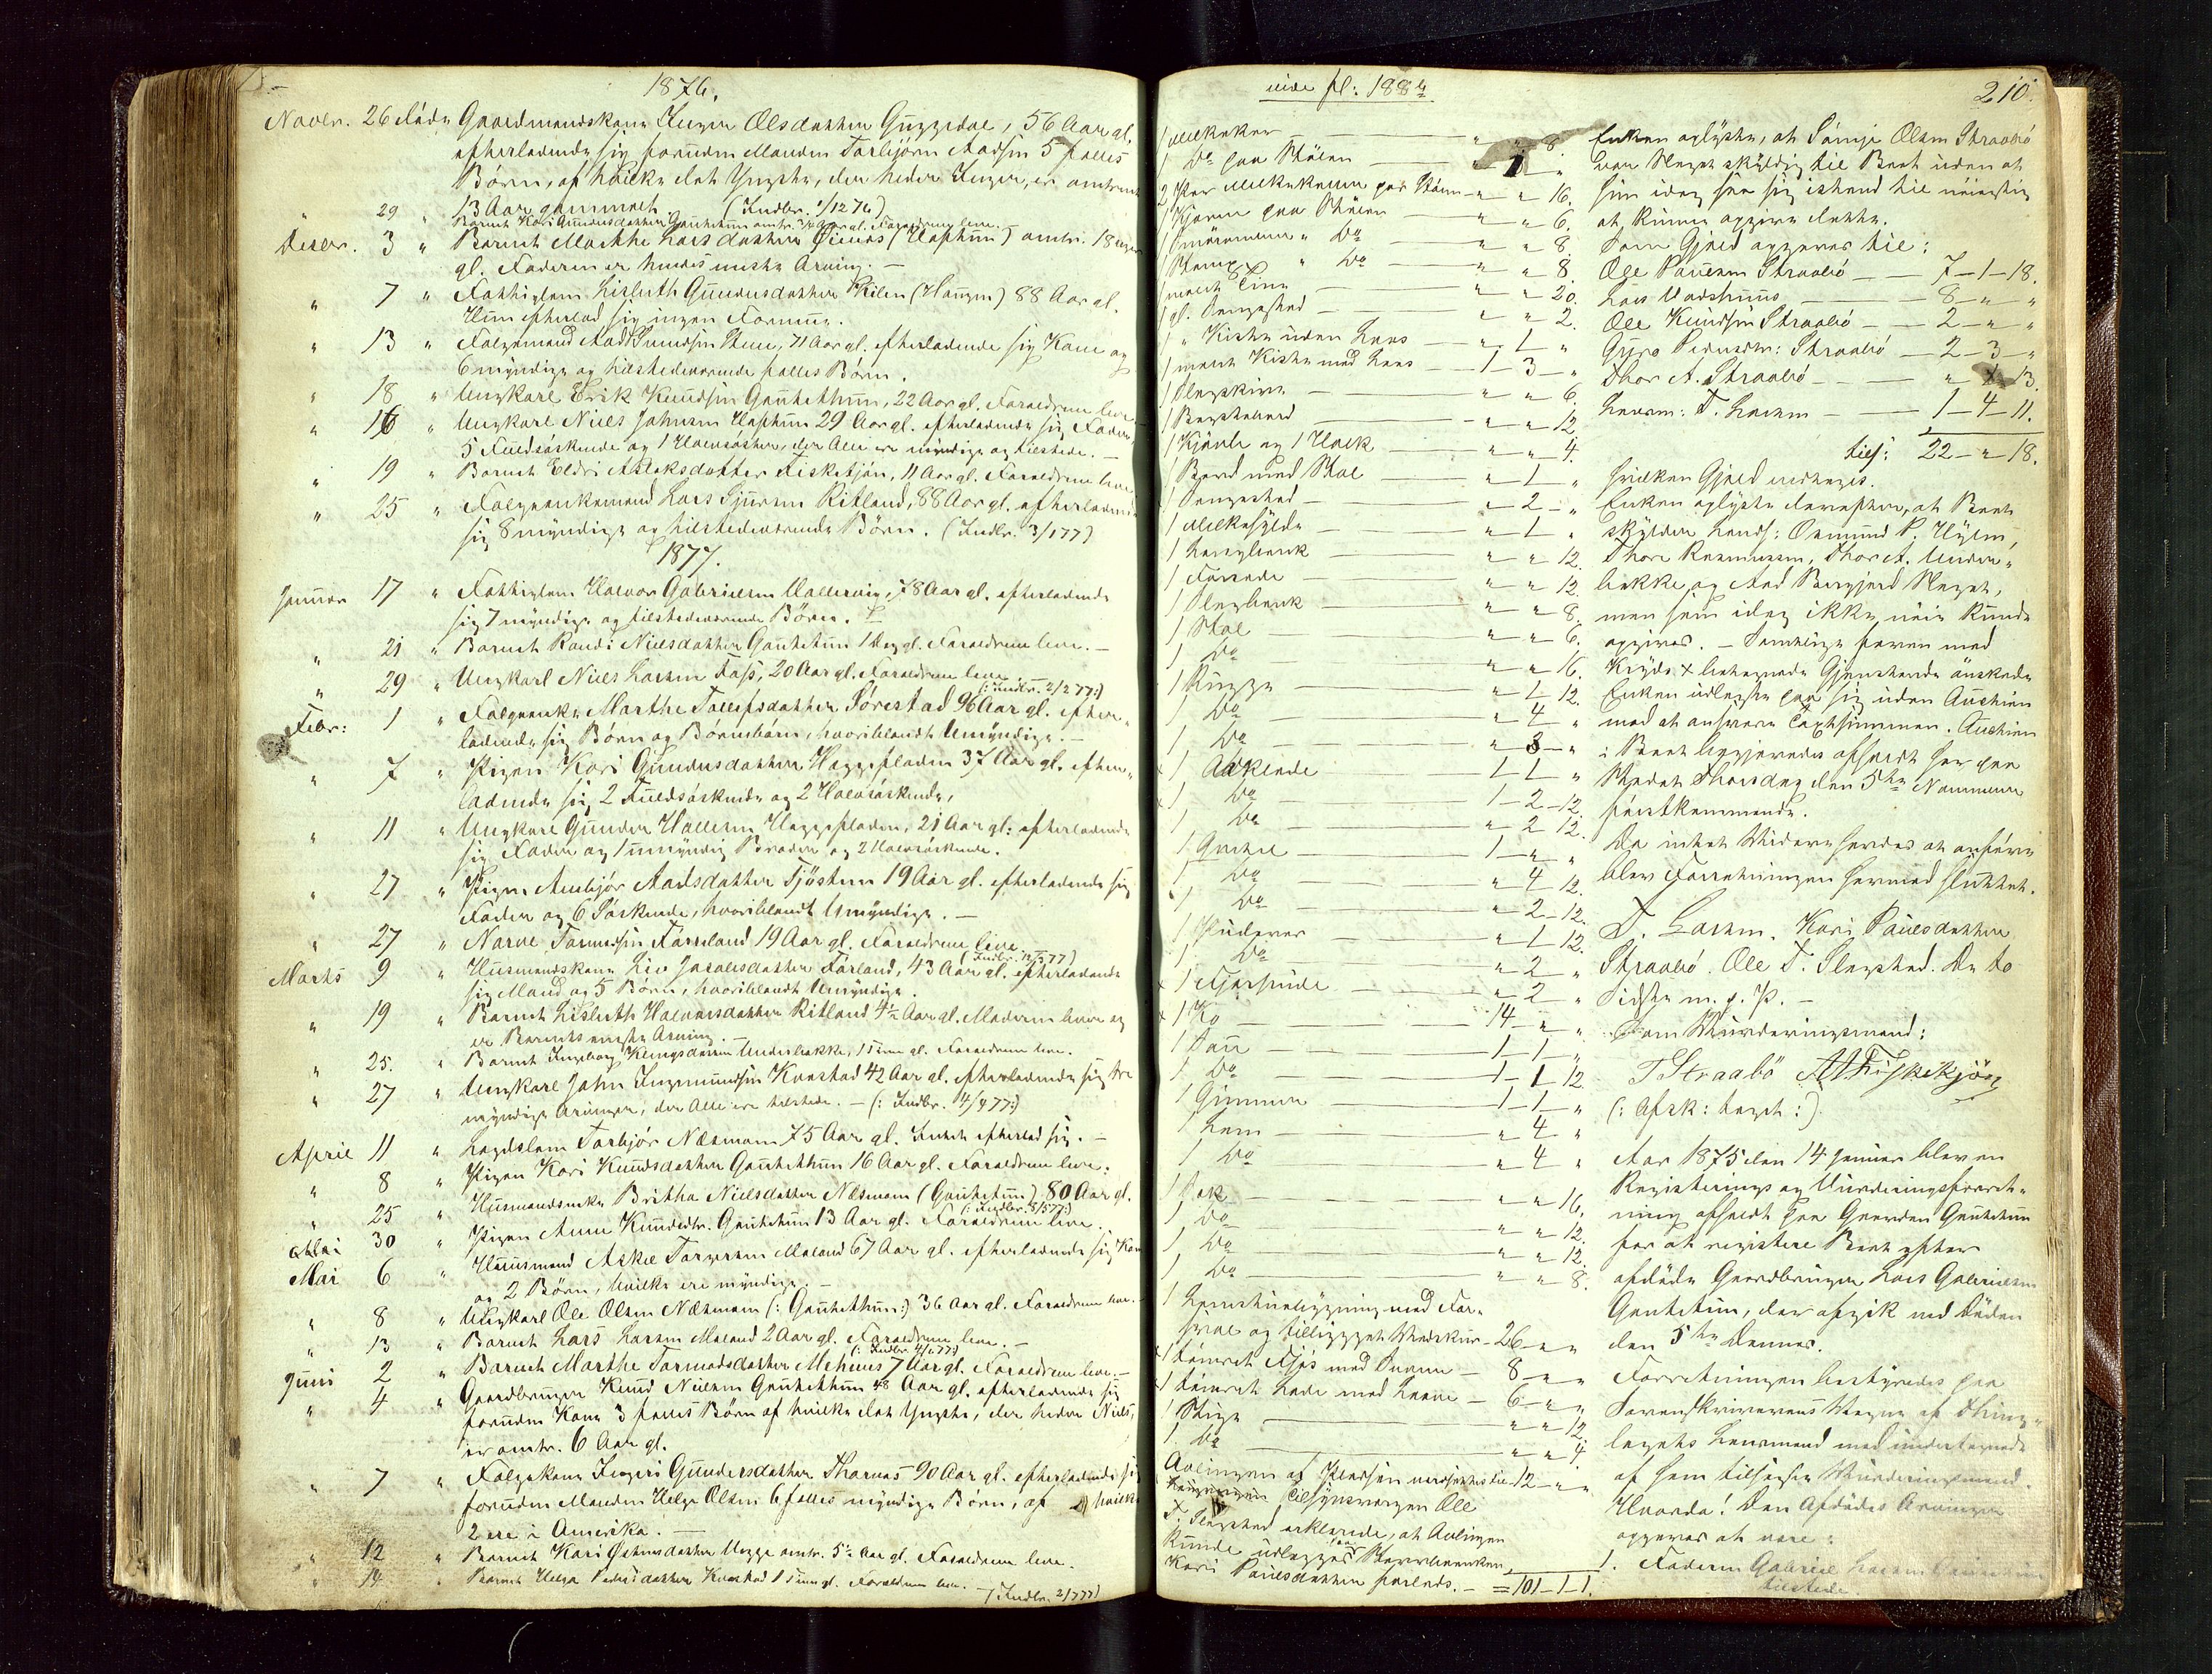 1876.
Novbr. 26 døde Gaardmandskone Inger Olsdatter Guggedal, 56 Aar gl.
efterladende sig foruden Manden Torbjörn Aadsen 5 fælles
Börn, af hvilke det Yngste, der heder Inger, er omtrent
13 Aar gammelt. (Indbr. 1/12 76)
" 29 " Barnet Kari Gundersdatter Gautethun omtr. 3/4 Aar gl. Forældrene leve.
Decbr. 3 " Barnet Marthe Larsdatter (Hapthun) omtr. 18 uger
gl. Faderen er hendes eneste Arving. —
" 7 " Fattiglem Lisbeth Gundersdatter (Haugen) 88 Aar gl.
Hun efterlod sig ingen Formue.
" 13 " Folgemand Aad Gundersen 71 Aar gl. efterladende sig Kone og
6 myndige og tilstedeværende fælles Börn.
" 18 " Ungkarl Erik Knudsen Gautethun, 22 Aar gl. Forældrene leve
" 16 " Ungkarl Niels Johnsen Hapthun 29 Aar gl. efterladende sig Fader,
5 Fuldsöskende og 1 Halvsöster, der Alle ere myndige og tilstede. —
" 19 " Barnet Eldri Aslaksdatter Fisketjön, 11 Aar gl. Forældrene leve
" 25 " Folgeenkemand Lars Sjursen Ritland, 88 Aar gl. efterladende
sig 8 myndige og tilstedeværende Börn. (Indbr. 3/1 77)
1877.
Januar 17 " Fattiglem Halvor Gabrielsen Hallervig, 78 Aar gl. efterladende
sig 7 myndige og tilstedeværende Börn.
" 21 " Barnet Randi Nielsdatter Gautethun 1 Dag gl. Forældrene leve. —
" 29 " Ungkarl Niels Larsen Foss, 20 Aar gl. Forældrene leve.
(: Indbr. 2/2 77:)
Febr: 1 " Folgeenke Marthe Tollefsdatter Sörestad 96 Aar gl. efter-
ladende sig Börn og Börnebörn, hvoriblandt Umyndige. —
" 7 " Pigen Kari Gundersdatter Haggefladen 37 Aar gl. efter-
ladende sig 2 Fuldsöskende og 2 Halvsöskende,
" 11 " Ungkarl Gunder Hallesen Haggefladen, 21 Aar gl: efterladende
sig Fader og 1 umyndig Broder og 2 Halvsöskende.
" 27 " Pigen Anbjör Aadsdatter Tjösten 19 Aar gl. efterladende sig
Fader og 6 Söskende, hvoriblandt Umyndige. —
" 27 " Narve Tormodsen Forreland 19 Aar gl. Forældrene leve.
Marts 9 " Husmandskone Liv Jacobsdatter Förland, 43 Aar gl. efterladende
sig Mand og 5 Börn, hvoriblandt Umyndige.
" 19 " Barnet Lisbeth Halvorsdatter Ritland 4½ Aar gl. Moderen lever og
er Barnets eneste Arving. —
" 25. " Barnet Ingeborg Underbakke, 1 Time gl. Forældrene leve.
" 27 " Ungkarl John Ingemundsen Kvæstad 42 Aar gl. efterladende sig tre
myndige Arvinger, der Alle ere tilstede. — (: Indbr. 4/4 77:)
April 11 " Lagdslem Torbjör Næsmoen 75 Aar gl. Intet efterlod sig. —
" 8 " Pigen Kari Knudsdatter Gautethun 16 Aar gl. Forældrene leve.
" 25 " Husmandsenke Britha Nielsdatter Næsmoen (Gautetun) 80 Aar gl.
(: Indbr. 5/5 77:)
Mai 30 " Pigen Anne Knudsdtr. Gautetun 13 Aar gl. Forældrene leve.
Mai 6 " Huusmand Askel Torgersen Maland 67 Aar gl. efterladende sig Kone
og 2 Börn, hvilke ere myndige. —
" 8 " Ungkarl Ole Olsen Næsmoen (: Gautethun:) 36 Aar gl. Forældrene leve. —
" 13 " Barnet Lars Larsen Maland 2 Aar gl. Forældrene leve. —
Juni 2 " Barnet Marthe Tormodsdatter Mehus 7 Aar gl. Forældrene leve. —
" 4 " Gaardbruger Knud Nielsen Gautethun 48 Aar gl. efterladende sig
foruden Kone 3 fælles Börn af hvilke det Yngste, der heder Niels,
er omtr. 6 Aar gl.
" 7 " Folgekone Ingeri Gundersdatter 90 Aar gl. efterladende sig
foruden Manden Helge Olsen 6 fælles myndige Börn, af hvilke
2 ere i Amerika. —
" 12 " Barnet Kari omtr. 5½ Aar gl. Forældrene leve.
" 14 " Barnet Helga Pedersdatter Kvæstad 1 Time gl. Forældrene leve. —
(Indbr. 2/7 77)
vide fl: 188
210.
1 Melkeker — " " 8.
1 Do paa Stölen — " 1 "
2 Par Melkekoller paa Stölen — " " 16.
1 Kjerne paa Stölen — " " 6.
1 " Do — " " 8.
1 Stamp " Do — " " 8.
1 malet Tine — " " 20.
1 gl. Sengested — " " 2.
1 " Kiste uden Laas — " 1 "
1 malet Kiste med Laas — 1 - 3 - "
1 Slagskind — " " 6.
1 Bagstebord — " " 12
1 Kjørle og 1 Holk — " " 4.
1 Bord med Stol — " 1 "
1 Sengested — " 2 - "
1 Melkehylde — " 1 "
1 Langbænk — " " 12.
1 — " " 12.
1 Slagbænk — " " 8.
1 Stol — " " 6.
1 Do — " " 16.
1 Rugge — " 1 12.
1 Do — " 4 "
1 Do — " 3 - "
x 1 Aaklæde — 1 1 "
x 1 Do — 1 - 2 - 12.
1 Do — " 2 12.
1 — 1 - " "
1 Do — " 4 12.
1 Do — " 2 - 12.
1 Pudevar — " 1 12.
1 Do — " 2 "
x 1 — " 2 "
x 1 Ko — 14 - " "
1 Sau — 1 - 1 - "
1 Do — 1 - 1 12.
1 Gimmer — 1 - 1 - "
1 Lam — " 4 "
1 Do — " 4 "
1 Sæk — " " 16,
1 Do — " " 12.
1 Do — " " 12.
1 Do — " " 8.
1 med For-
stue og tilbygget Vedskur — 26 - " "
x 1 tömret Fjös med — 8 - " "
x 1 tömret Lade med Laave — 6 - " "
1 Stige — " " 12.
1 Do — " " 4.
Avlingen af Pladsen værdsattes til 12 - " "
Tilsynsværgen Ole
T. Slagstad erklærede, at Avlingen
kunde udlægges Stervboenken,
Kari Paulsdatter forlods. — = 101 - 1 - 1.
Enken oplyste, at Sönnje Olsen Straabö
var Meget skyldig til Boet uden at
hun idag saa sig istand til nöiagtig
at kunne opgive dette.
Som Gjæld opgaves til:
Ole Paulsen Straabö — 7 - 1 - 18.
Lars — 8 - " "
Ole Knudsen Straabö — 2 - " "
Guro Pedersdtr: Straabö — 2 - 3 - "
Thor A. Straabö — " 13.
Lensm: T. Larsen — 1 - 4 - 11.
tils: 22 - " 18.
hvilken Gjæld vedtoges.
Enken oplyste derefter, at Boet
skylder Landh: Osmund P. Hylen,
Thore Rasmussen, Thor A. Under-
bakke og Aad Meget,
men som idag ikke nöie kunde
opgives. — Samtlige foran med
Kryds x betegnede Gjenstande önskede
Enken udlagte paa sig uden Auction
mod at ansvare Taxtsummen. Auction
i Boet begjæredes afholdt her paa
Stedet Thorsdag den 5te
förstkommende.
Da intet Videre havdes at anföre
blev Forretningen hermed sluttet.
T. Larsen. Kari Paulsdatter
Straabö. Ole T. Slagstad. De to
Sidste m. p. P. —
Som Vurderingsmænd:
T Straabö A A Fiskekjön
(: Afsk: taget :)
Aar 1875 den 14 Januar blev en
Registerings og Vurderingsforret-
ning afholdt paa Gaarden Gautetun
for at registere Boet efter
afdöde Gaardbruger Lars Gabrielsen
Gautetun, der afgik ved Döden
den 5te Dennes.
Forretningen bestyredes paa
Sorenskriverens Vegne af Thing-
lagets Lensmand med undertegnede
af ham tilsagte Vurderingsmænd.
Hvorda! Den Afdödes Arvinger
opgaves at være:
1. Faderen Gabriel Larsen
tilstede.